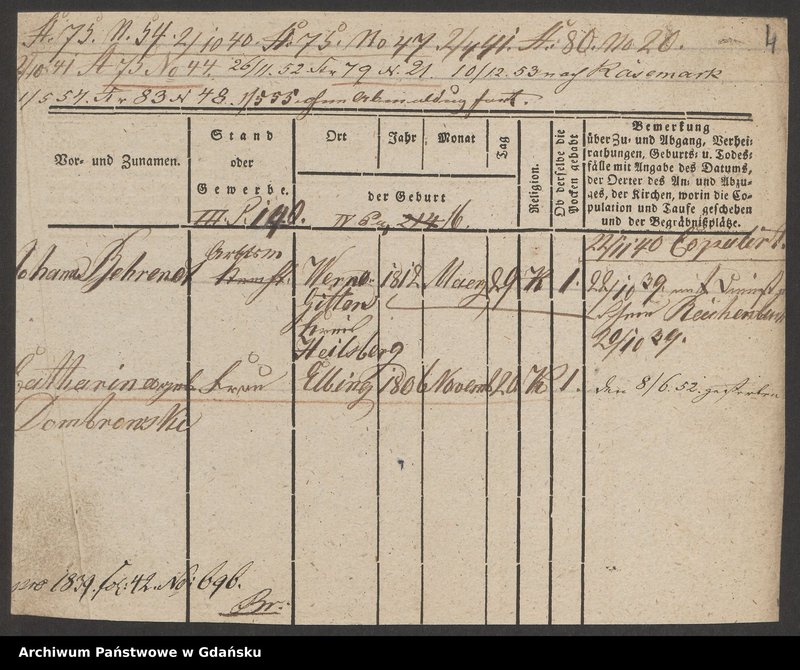 A. 75. N. 54. 2/10 40. A. 75. No 47 2/4 41. A. 80. No 20. 4
2/10. 41 A 75 No 44. 26/11. 52 A. 79 N. 21 10/12. 53 nach Käsemark
1/5 54. A. 83 N 48. 1/5 55 ohne Abmeldung fort.
Vor- und Zunamen.
Stand
oder
Gewerbe.
Ort
Jahr
Monat
Tag
der Geburt
Religion.
Ob derselbe die
Pocken gehabt
Bemerkung
über Zu- und Abgang, Verhei-
rathungen, Geburts- u. Todes-
fälle mit Angabe des Datums,
der Oerter des An- und Abzu-
ges, der Kirchen, worin die Co-
pulation und Taufe geschehen
und der Begräbnißplätze.
III. P. 190. IV P. 214 16.
22/11 40 Copulirt.
Johann Behrendt Werne- 1812 Maerz 29 K 1. 22/10 39
gitten Reichenberg
Kreis 20/10 39.
Heilsberg
Catharina geb Frau Elbing 1806 Novemb 20 K 1. den 8/6. 52. gestorben
Dombrowski
pro 1839. fol: 42. No: 696.
Br:
Archiwum Państwowe w Gdańsku